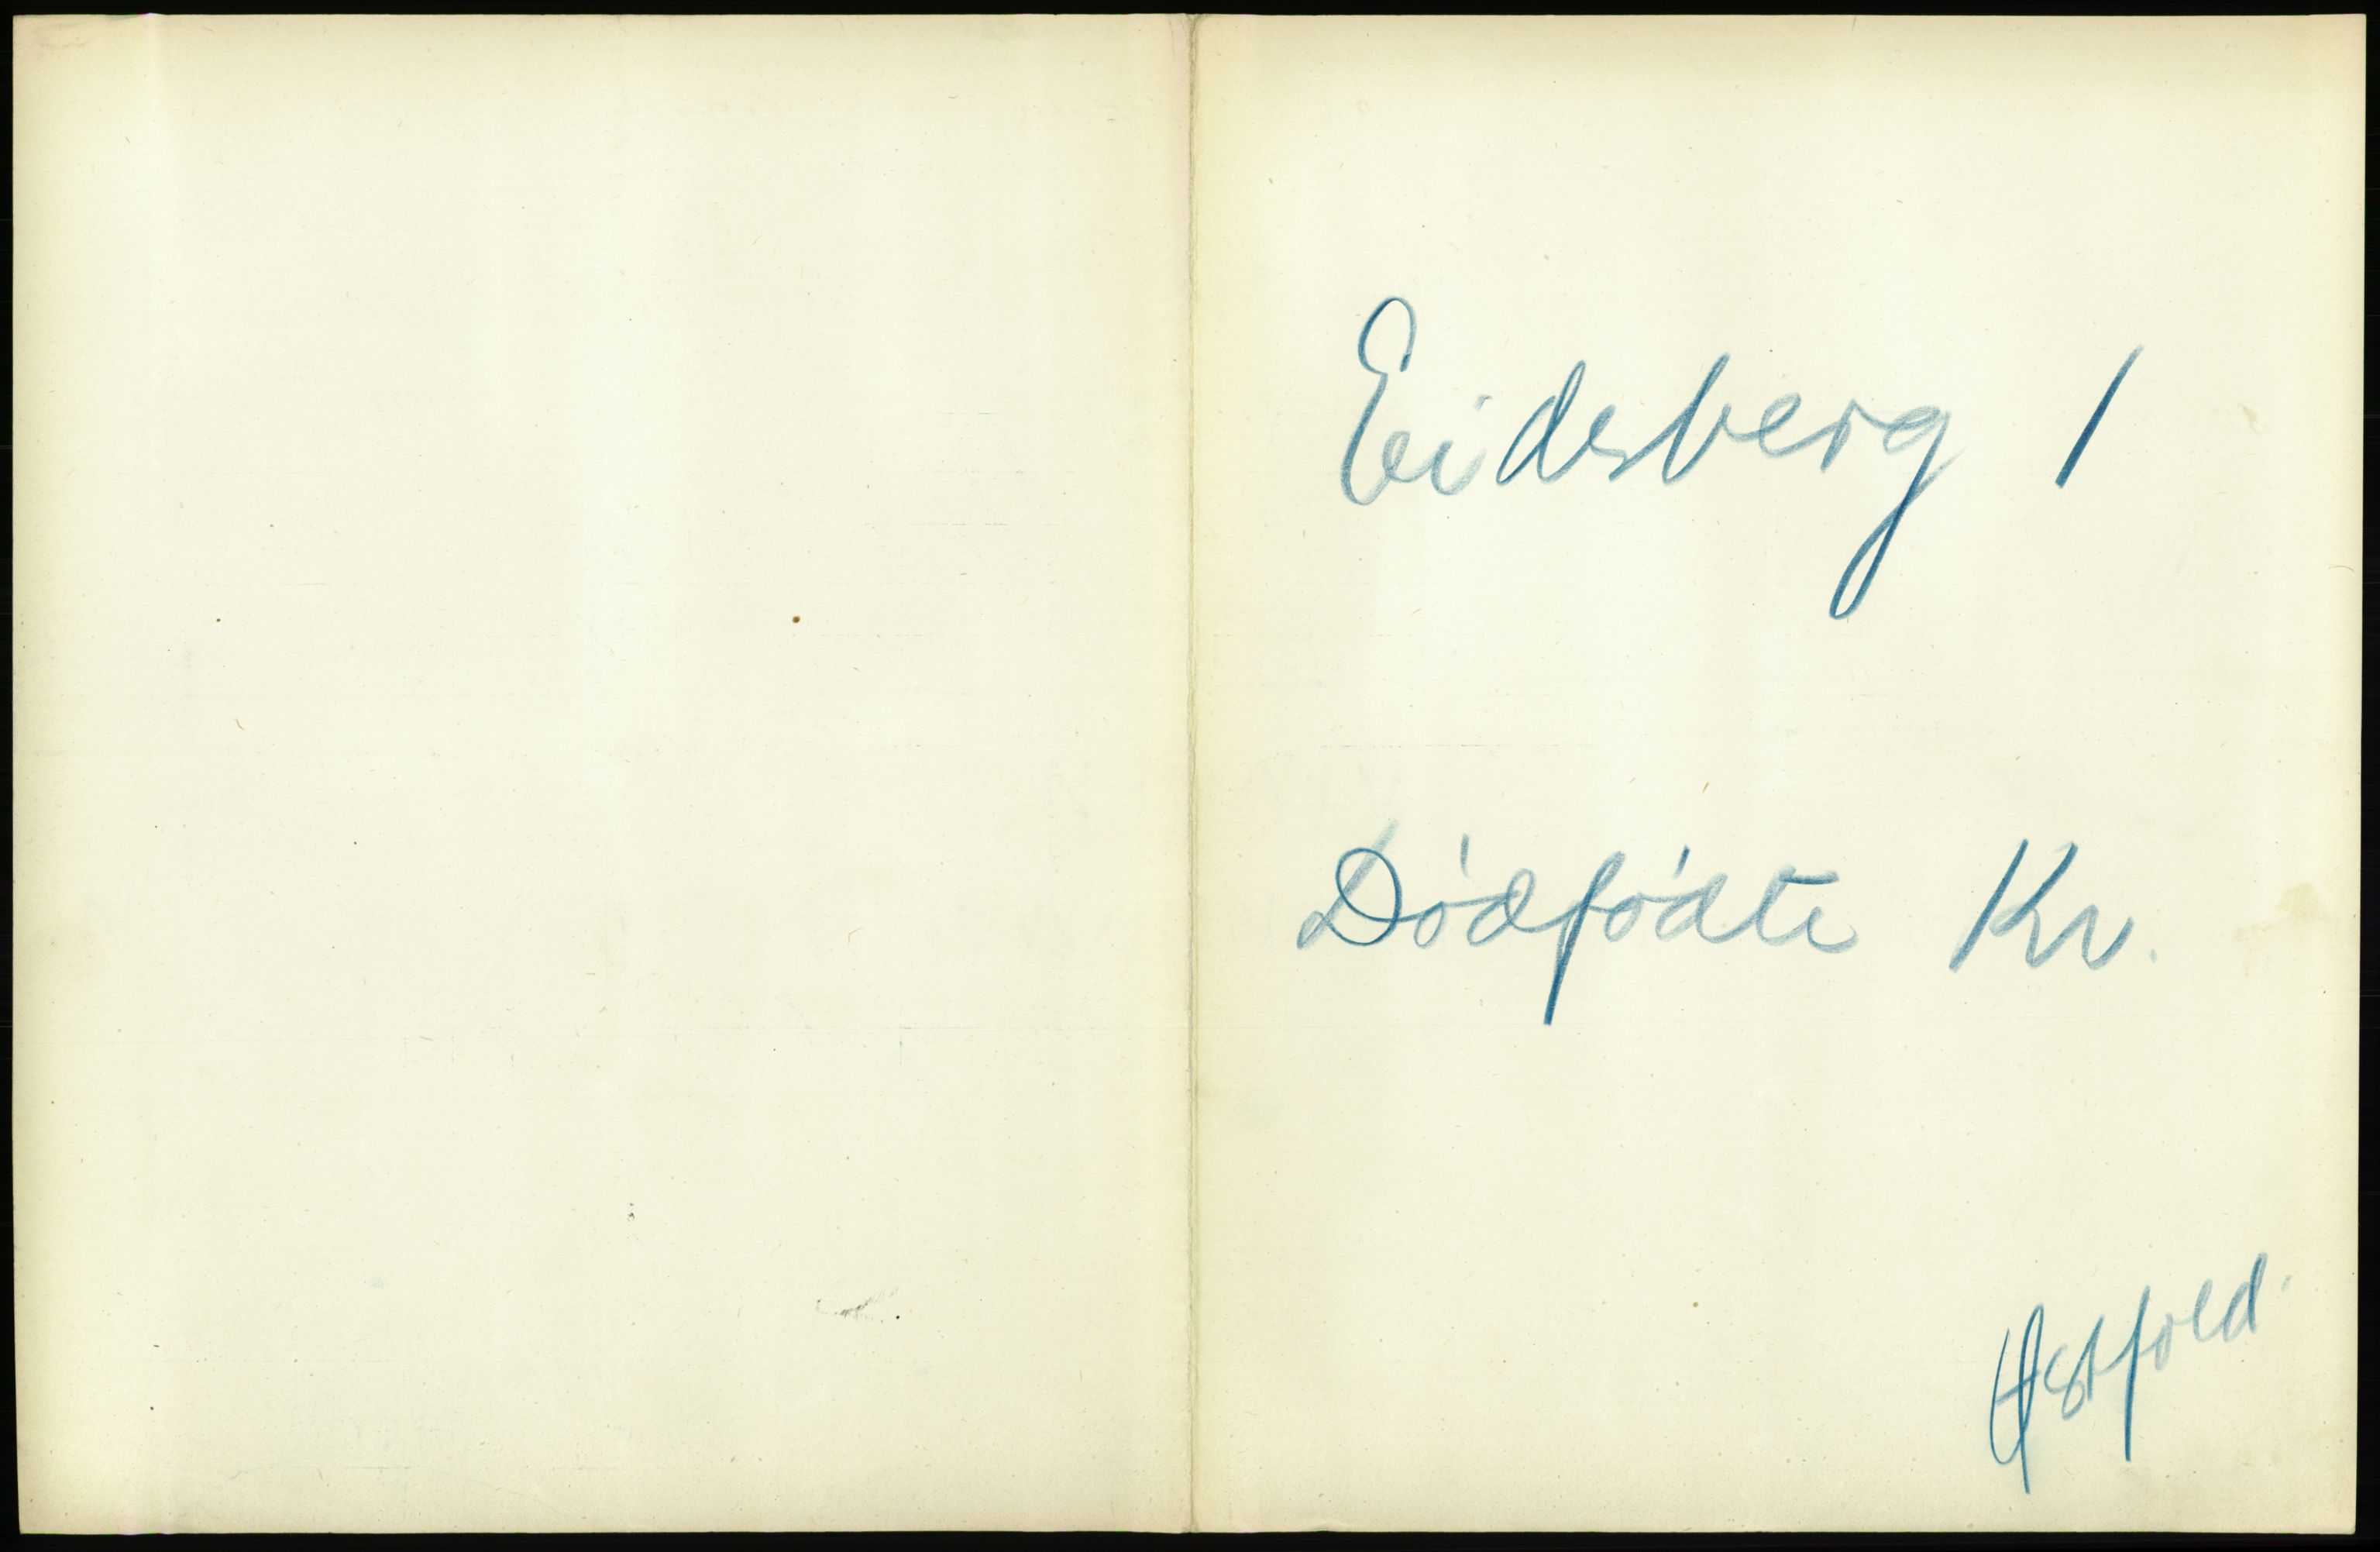 Eidsberg 1
Dødfødte Kv.
Østfold.